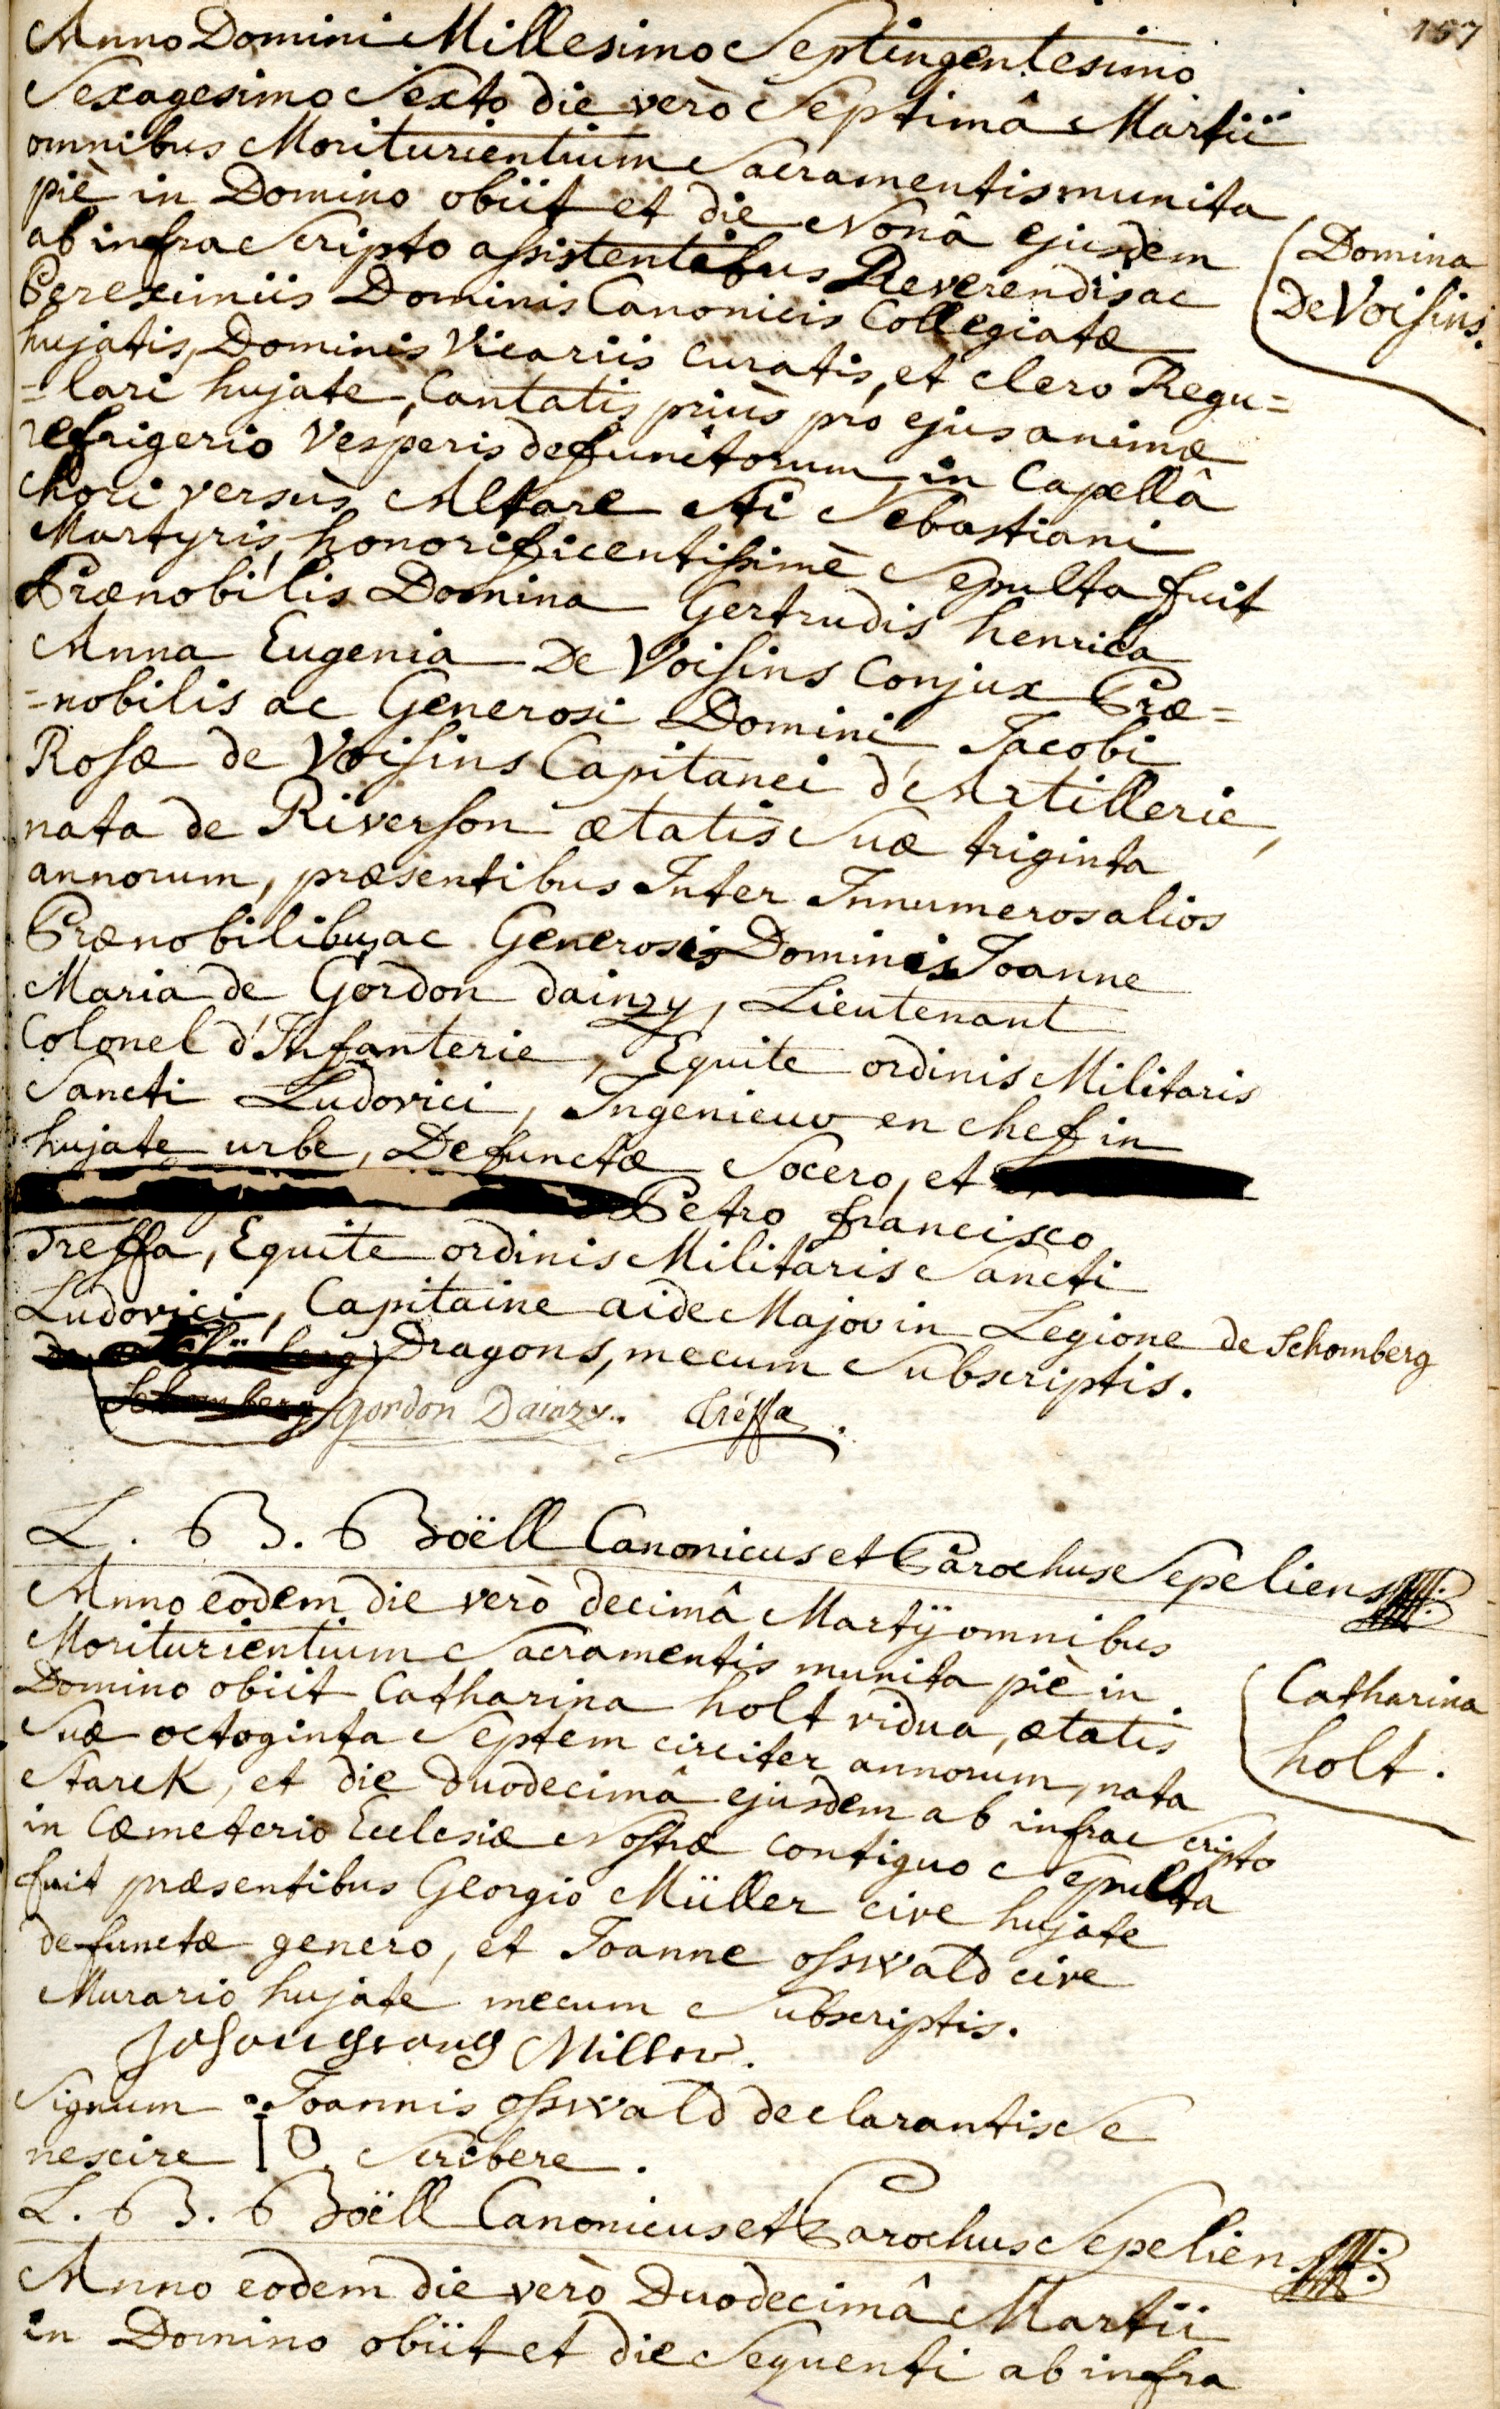 157
Anno Domini Millesimo Septingentesimo
Sexagesimo Sexto die verò Septimâ Martii
omnibus Moriturientium Sacramentis munita
piè in Domino obiit et die Nonâ ejusdem
ab infra Scripto assistentibus Reverendis ac
Perexcimiis Dominis Canonicis Collegiatæ
hujatis, Dominis Vicariis curatis, et clero Regu=
=lari hujate, Cantatis priùs pro ejus animæ
refrigerio Vesperis defunctorum, in Capellâ
Chori versùs Altare Sti Sebastiani
Martyris, honorificentissimè Sepulta fuit
Prænobilis Domina Gertrudis henrica
Anna Eugenia De Voisins Conjux Præ=
=nobilis ac Generosi Domini Jacobi
Rosæ de Voisins Capitanei d'Artillerie,
nata de Riverson ætatis Suæ triginta
annorum, præsentibus Inter Innumeros alios
Prænobilibus ac Generosis Dominis Joanne
Maria de Gordon dainzy, Lieutenant
Colonel d'Infanterie, Equite ordinis Militaris
Sancti Ludovici, Ingenieur en chef in
hujate urbe, Defunctæ Socero, et
Petro francisco
Treffa, Equite ordinis Militaris Sancti
Ludovici, Capitaine aide Major in Legione de Schomberg
Dragons, mecum Subscriptis.
Schomberg gordon Dainzy.. Tréffa.
Domina
De Voisins.
L. B. Boëll Canonicus et Parochus Sepeliens
Anno eodem die verò decimâ Martÿ omnibus
Moriturientium Sacramentis munita piè in
Domino obiit Catharina holt vidua, ætatis
Suæ octoginta Septem circiter annorum, nata
Starck, et die duodecimâ ejusdem ab infra Scripto
in Cæmeterio Ecclesiæ Nostræ contiguo Sepulta
fuit præsentibus Georgio Müller cive hujate
defunctæ genero, et Joanne osswald cive
Murario hujate mecum Subscriptis.
Catharina
holt.
Signum Joannis osswald declarantis Se
nescire IO Scribere.
L. B. Boëll Canonicus et Parochus Sepeliens
Anno eodem die verò Duodecimâ Martii
in Domino obiit et die Sequenti ab infra